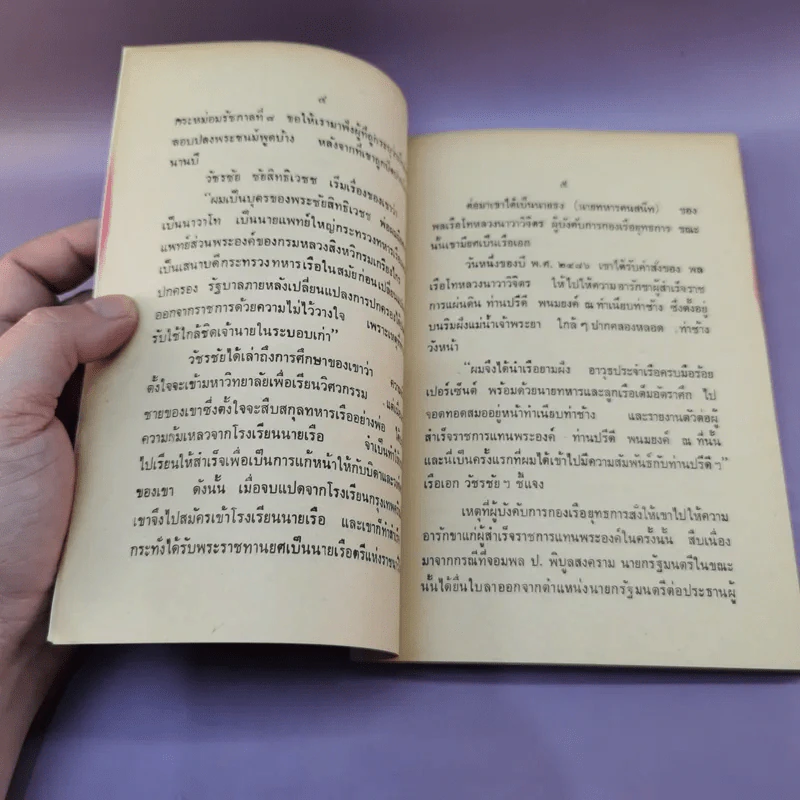 ๔
กระหม่อมรัชกาลที่ ๘ ขอให้เรามาฟังผู้ที่ถูก
ลอบปลงพระชนม์พูดบ้าง หลังจากที่เขาถูก
นานปี
วัชรชัย ชัยสิทธิเวชช เริ่มเรื่องของเขาว่า
“ผมเป็นบุตรของพระชัยสิทธิเวชช
เป็นนาวาโท เป็นนายแพทย์ใหญ่กระทรวงทหารเรือ
แพทย์ส่วนพระองค์ของกรมหลวงสิงหวิกรมเกรียงไกร
เป็นเสนาบดีกระทรวงทหารเรือในสมัยก่อนเปลี่ยน
ปกครอง รัฐบาลภายหลังเปลี่ยนแปลงการปกครอง
ออกจากราชการด้วยความไม่ไว้วางใจ
รับใช้ใกล้ชิดเจ้านายในระบอบเก่า”
วัชรชัยได้เล่าถึงการศึกษาของเขาว่า
ตั้งใจจะเข้ามหาวิทยาลัยเพื่อเรียนวิศวกรรม
ชายของเขาซึ่งตั้งใจจะสืบสกุลทหารเรืออย่างพ่อ
ความล้มเหลวจากโรงเรียนนายเรือ จำเป็นที่
ไปเรียนให้สำเร็จเพื่อเป็นการแก้หน้าให้กับบิดาและ
ของเขา ดังนั้น เมื่อจบแปดจากโรงเรียนกรุงเทพ
เขาจึงไปสมัครเข้าโรงเรียนนายเรือ และเขาก็
กระทั่งได้รับพระราชทานยศเป็นนายเรือตรีแห่งราช
๕
ต่อมาเขาได้เป็นนายธง (นายทหารคนสนิท) ของ
พลเรือโทหลวงนาวาวิจิตร ผู้บังคับการกองเรือยุทธการ ขณะ
นั้นเขามียศเป็นเรือเอก
วันหนึ่งของปี พ.ศ. ๒๔๘๖ เขาได้รับคำสั่งของ พล
เรือโทหลวงนาวาวิจิตร ให้ไปให้ความอารักขาผู้สำเร็จราช
การแผ่นดิน ท่านปรีดี พนมยงค์ ณ ทำเนียบท่าช้าง ซึ่งตั้งอยู่
บนริมฝั่งแม่น้ำเจ้าพระยา ใกล้ ๆ ปากคลองหลอด ท่าช้าง
วังหน้า
“ผมจึงได้นำเรือยามฝั่ง อาวุธประจำเรือครบมือร้อย
เปอร์เซ็นต์ พร้อมด้วยนายทหารและลูกเรือเต็มอัตราศึก ไป
จอดทอดสมออยู่หน้าทำเนียบท่าช้าง และรายงานตัวต่อผู้
สำเร็จราชการแทนพระองค์ ท่านปรีดี พนมยงค์ ณ ที่นั้น
และนี่เป็นครั้งแรกที่ผมได้เข้าไปมีความสัมพันธ์กับท่านปรีดี ฯ”
เรือเอก วัชรชัย ฯ ชี้แจง
เหตุที่ผู้บังคับการกองเรือยุทธการสั่งให้เขาไปให้ความ
อารักขาแก่ผู้สำเร็จราชการแทนพระองค์ในครั้งนั้น สืบเนื่อง
มาจากกรณีที่จอมพล ป. พิบูลสงคราม นายกรัฐมนตรีในขณะ
นั้นได้ยื่นใบลาออกจากตำแหน่งนายกรัฐมนตรีต่อประธานผู้